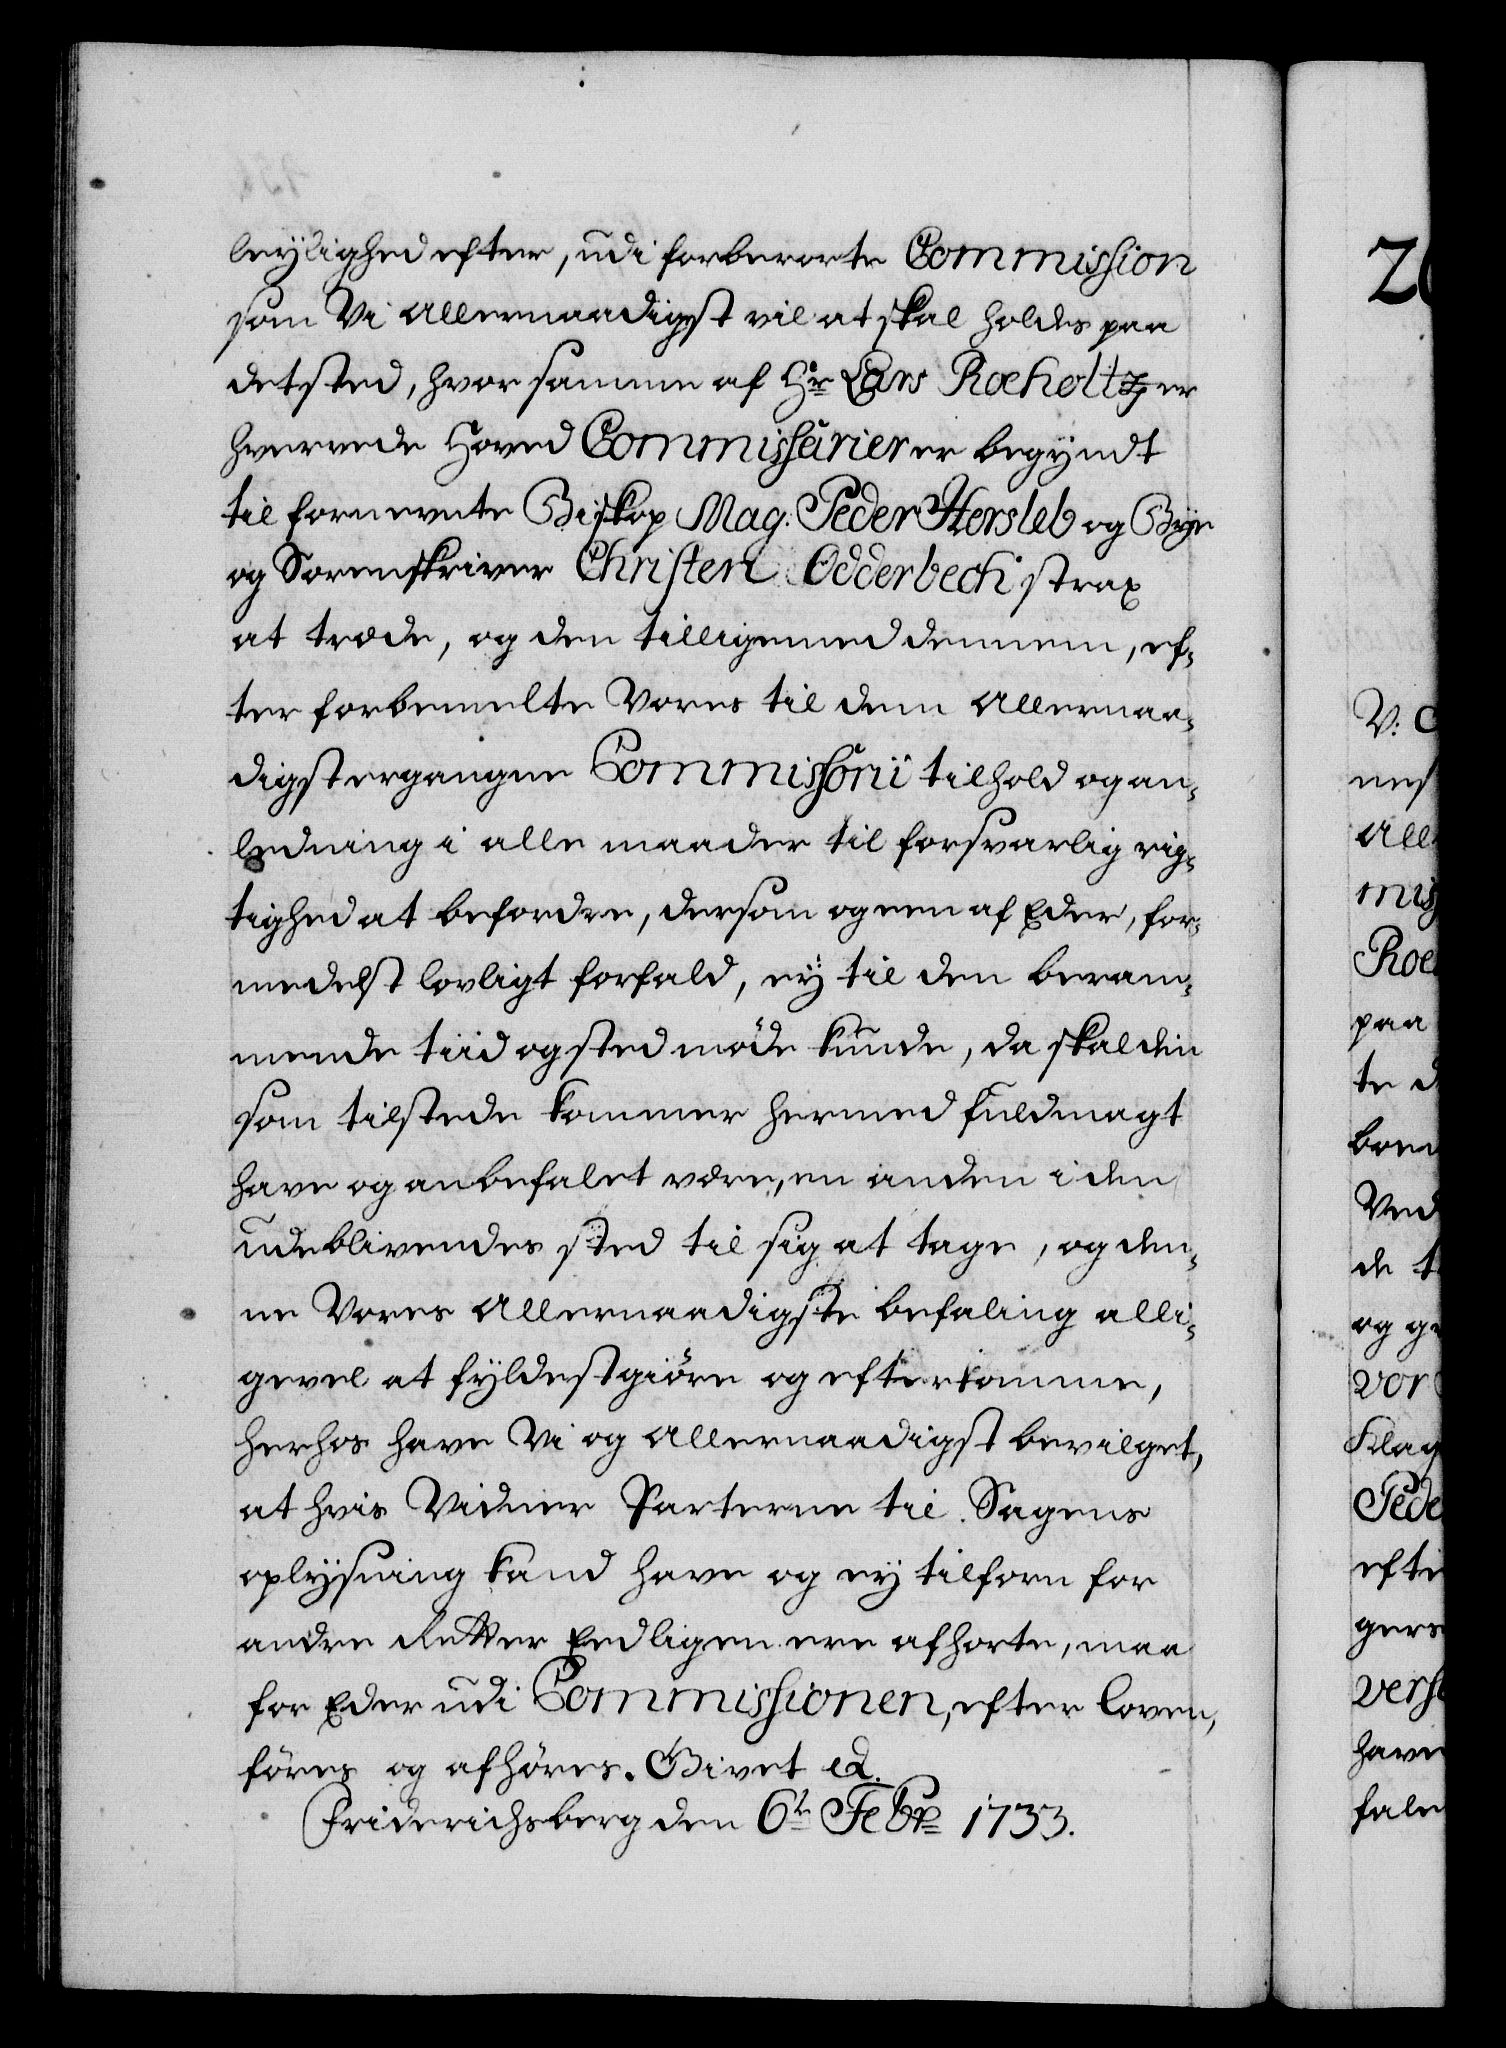 leylighed efter, udi forberørte Commission
som Vi Allernaadigst vil at skal holdes paa
det sted, hvor samme af Hr Lars Rocholtz er
hvervede Hoved Commissarier er begyndt
til fornevnte Biskop Mag. Peder Hersleb og Bye
og Sorenskriver Christen Odderbech strax
at træde, og den tilligemed dennem, ef-
ter forbemelte Vores til dem Allernaa-
digst ergangne Commissorii tilhold og an-
ledning i alle maader til forsvarlig rig-
tighed at befordre, dersom og een af Eder, for-
medelst lovligt forfald, ey til den beram-
mende tiid og sted møde kunde, da skal den
som tilstede kommer hermed fuldmagt
have og anbefalet være, en anden i den
udeblivendes sted til sig at tage, og den-
ne Vores Allernaadigste befaling alli-
gevel at fyldestgiøre og efterkomme,
herhos have Vi og Allernaadigst bevilget,
at hvis Vidner Parterne til Sagens
oplysning kand have og ey tilforn for
andre Retter Eedligen ere afhørte, maa
for Eder udi Commissionen, efter Loven,
føres og afhøres. Givet etc.
Friderichsberg den 6te Febr 1733.
V:
nes
All
mis
Roe
paa
te d
boen
Ved
de t
og ge
vor
Klag
Pede
efte
gers
vers
have
fale